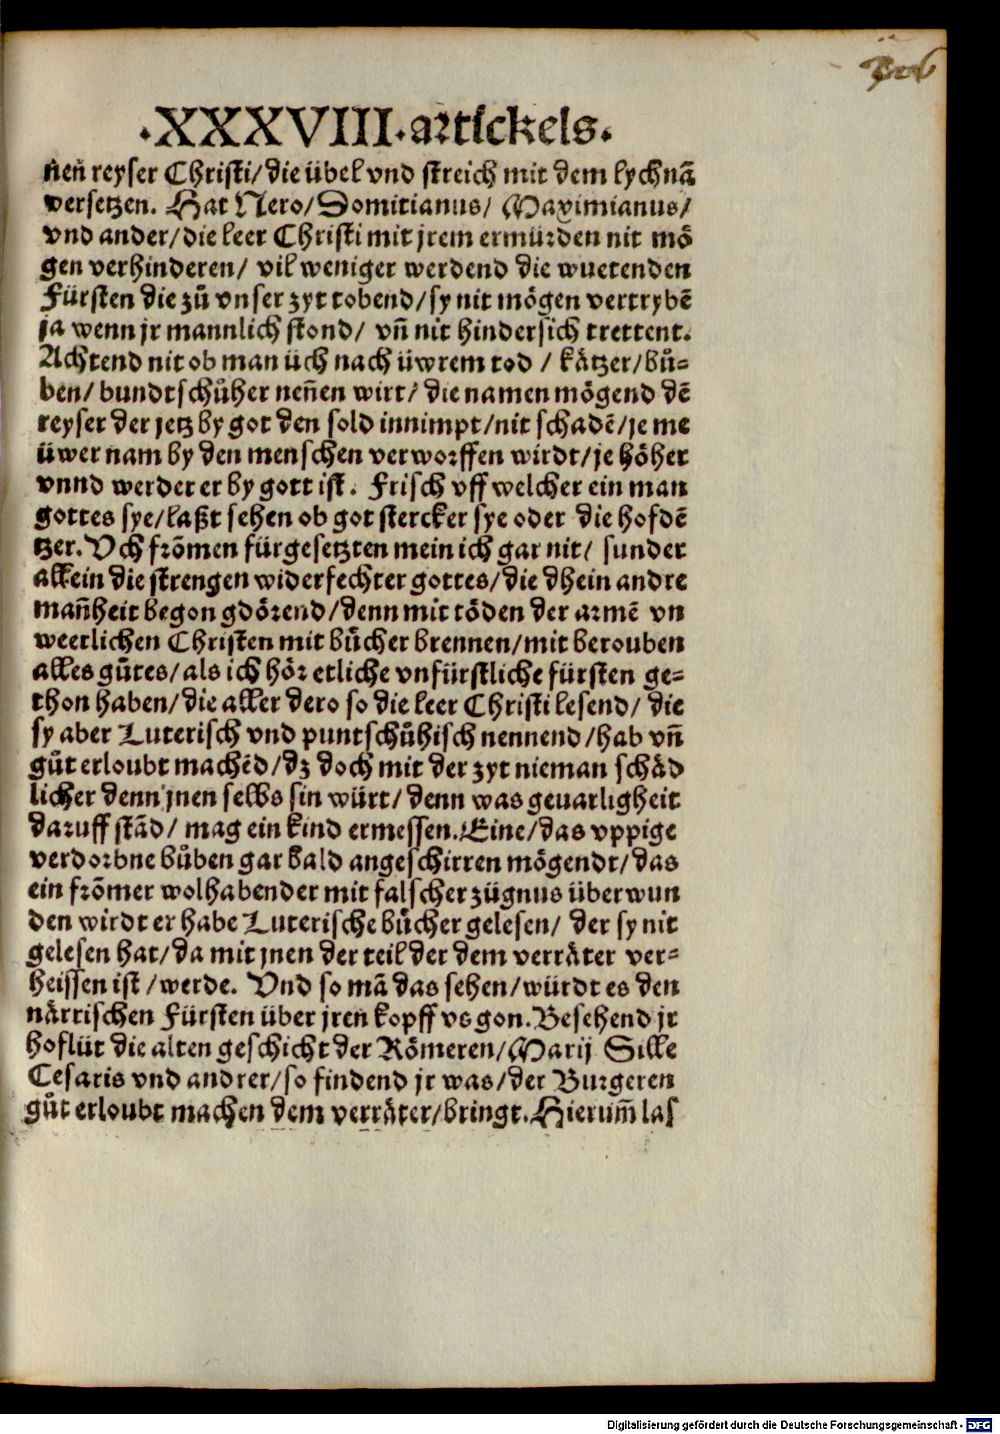 ·XXXVIII·artickels·
nen̄ reyser Christi/die übel vnd streich mit dem lychnā
versetzen. Hat Nero/Domitianus/ Maximianus/
vnd ander/die leer Christi mit jrem ermürden nit mö
gen verhinderen/ vil weniger werdend die wuetenden
Fürsten die zů vnser zyt tobend/sy nit mögen vertrybē
ja wenn jr mannlich stond/ vn̄ nit hindersich trettent.
Achtend nit ob man üch nach üwrem tod / kätzer/bů-
ben/ bundtschůher nen̄en wirt/ die namen mögend dē
reyser der jetz by got den sold innimpt/nit schadē/je me
üwer nam by den menschen verworffen wirdt/je höher
vnnd werder er by gott ist. Frisch vff welcher ein man
gottes sye/laßt sehen ob got stercker sye oder die hofdē
tzer. Vch frömen fürgesetzten mein ich gar nit/ sunder
allein die strengen widerfechter gottes/die dhein andre
man̄heit begon gdörend/denn mit töden der armē vn
weerlichen Christen mit bücher brennen/mit berouben
alles gůtes/als ich hör etliche vnfürstliche fürsten ge-
thon haben/die aller dero so die leer Christi lesend/ die
sy aber Luterisch vnd puntschůhisch nennend/hab vn̄
gůt erloubt machēd/dz doch mit der zyt nieman schäd
licher denn jnen selbs sin würt/ denn was geuarligheit
daruff stād/ mag ein kind ermessen. Eine/das vppige
verdorbne bůben gar bald angeschirren mögendt/das
ein frömer wolhabender mit falscher zügnus überwun
den wirdt er habe Luterische bücher gelesen/ der sy nit
gelesen hat/da mit jnen der teil der dem verräter ver-
heissen ist /werde. Vnd so mā das sehen/würdt es den
närrischen Fürsten über jren kopff vs gon. Besehend jr
hoflüt die alten geschicht der Römeren/Marij Sille
Cesaris vnd andrer/so findend jr was/der Burgeren
gůt erloubt machen dem verräter/bringt. Hierum̄ las
Digitalisierung gefördert durch die Deutsche Forschungsgemeinschaft - DFG